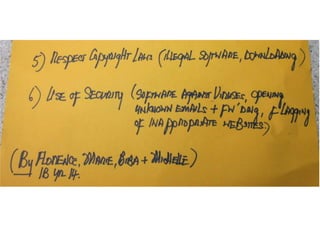 5) Respect Copyright Laws (illegal software, downloading)
6) Use of Security (software against viruses, opening
unknown emails + fw'ding, flagging
of inappropriate websites)
(By Florence, Marie, Biba + Michelle)
18 4n 14.